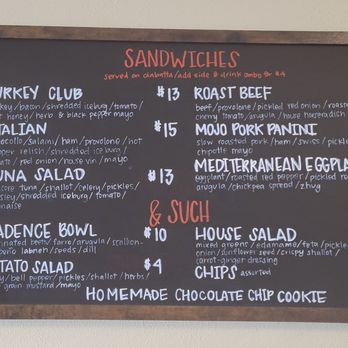 SANDWICHES
served on ciabatta/add side & drink combo for $4
URKEY CLUB $13
key/bacon/shredded iceburg/tomato/
t honey/herb & black pepper mayo
TALIAN $15
ocollo/salami/ham/provolone/hot
pper relish/shredded iceburg/
/red onion/house vin/mayo
UNA SALAD $13
core tuna/shallot/celery/pickles/
sley/shredded iceburg/tomato/
naise
ROAST BEEF
beef/provolone/pickled red onion/roasted
cherry tomato/arugula/house horseradish
MOJO PORK PANINI
slow roasted pork/ham/swiss/pickle
chipotle mayo
MEDITERRANEAN EGGPLA
eggplant/roasted red pepper/pickled re
arugula/chickpea spread/zhug
& SUCH
ADENCE BOWL $10
inated beets/farro/arugula/scallion
labneh/seeds/dill
TATO SALAD $4
/bell pepper/pickles/shallot/herbs/
grain mustard/mayo
HOUSE SALAD
mixed greens/edamame/feta/pickle
onion/sunflower seed/crispy shallot/
carrot-ginger dressing
CHIPS assorted
HOMEMADE CHOCOLATE CHIP COOKIE